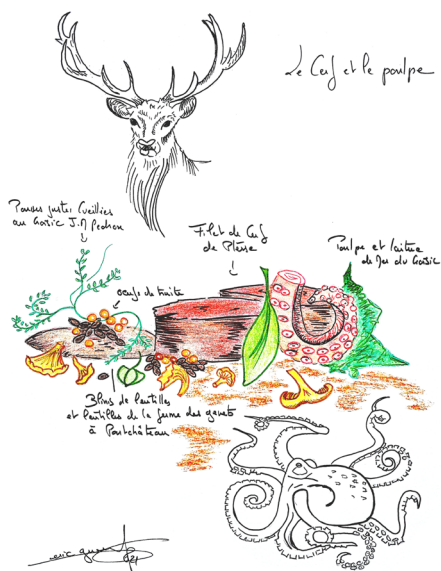 Le Cerf et le poulpe
Pousses justes Cueillies
au Croisic J.M Pedron
Filet de Cerf
de Plesse
Poulpe et laitue
de Mer du Croisic
oeufs de truite
Blinis de lentilles
et lentilles de la ferme des
à Pontchâteau